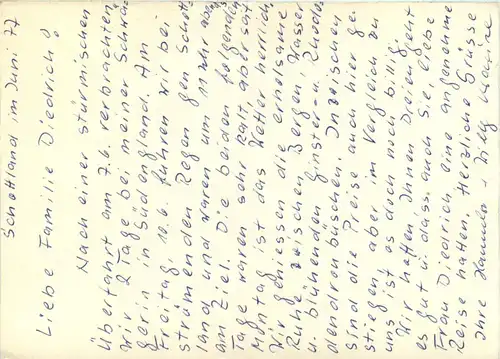 Schottland im Juni 77
Liebe Familie Diedrich!
Nach einer stürmischen
Überfahrt am 7.6. verbrachten
wir 2 Tage bei meiner Schwä-
gerin in Südengland. Am
Freitag, 10.6. fuhren wir bei
strömenden Regen gen Schott-
land und waren um 11 Uhr
am Ziel. Die beiden folgenden
Tage waren sehr kalt, aber seit
Montag ist das Wetter herrlich.
Wir geniessen die erholsame
Ruhe zwischen Bergen, Wasser
u. blühenden Ginster- u. Rhodo-
dendrenbüschen. Inzwischen
sind die Preise auch hier ge-
stiegen, aber im Vergleich zu
uns ist es doch noch billig.
Wir hoffen Ihnen Dreien geht
es gut u. dass auch Sie, liebe
Frau Diedrich eine angenehme
Reise hatten. Herzliche Grüsse
Ihre Hannelo + Willy